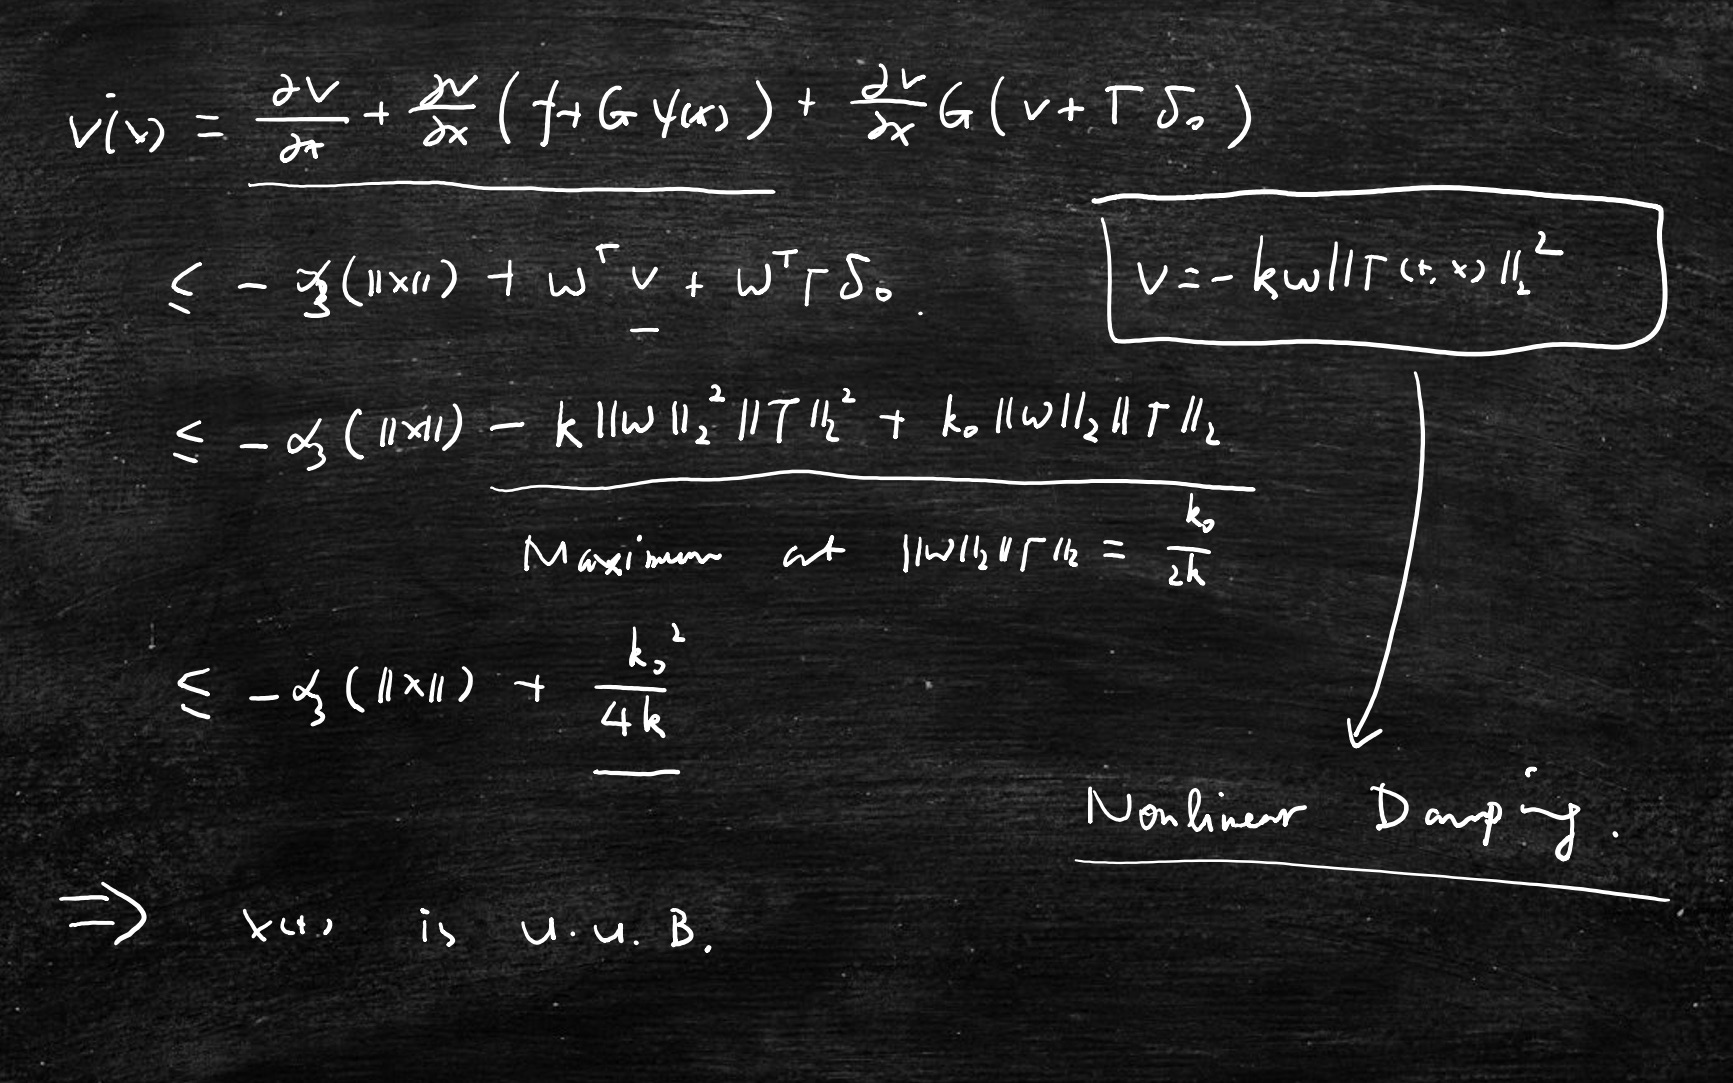 V̇(x) = ∂V/∂t + ∂V/∂x (f + G ψ(x)) + ∂V/∂x G (v + Γ δ₀)
v = - k w ||Γ(t, x)||₂²
≤ - α₃(||x||) + wᵀ v + wᵀ Γ δ₀.
≤ - α₃(||x||) - k ||w||₂² ||Γ||₂² + k₀ ||w||₂ ||Γ||₂
Maximum at ||w||₂ ||Γ||₂ = k₀/2k
≤ - α₃(||x||) + k₀²/4k
Nonlinear Damping.
⇒ x(t) is u.u.B.